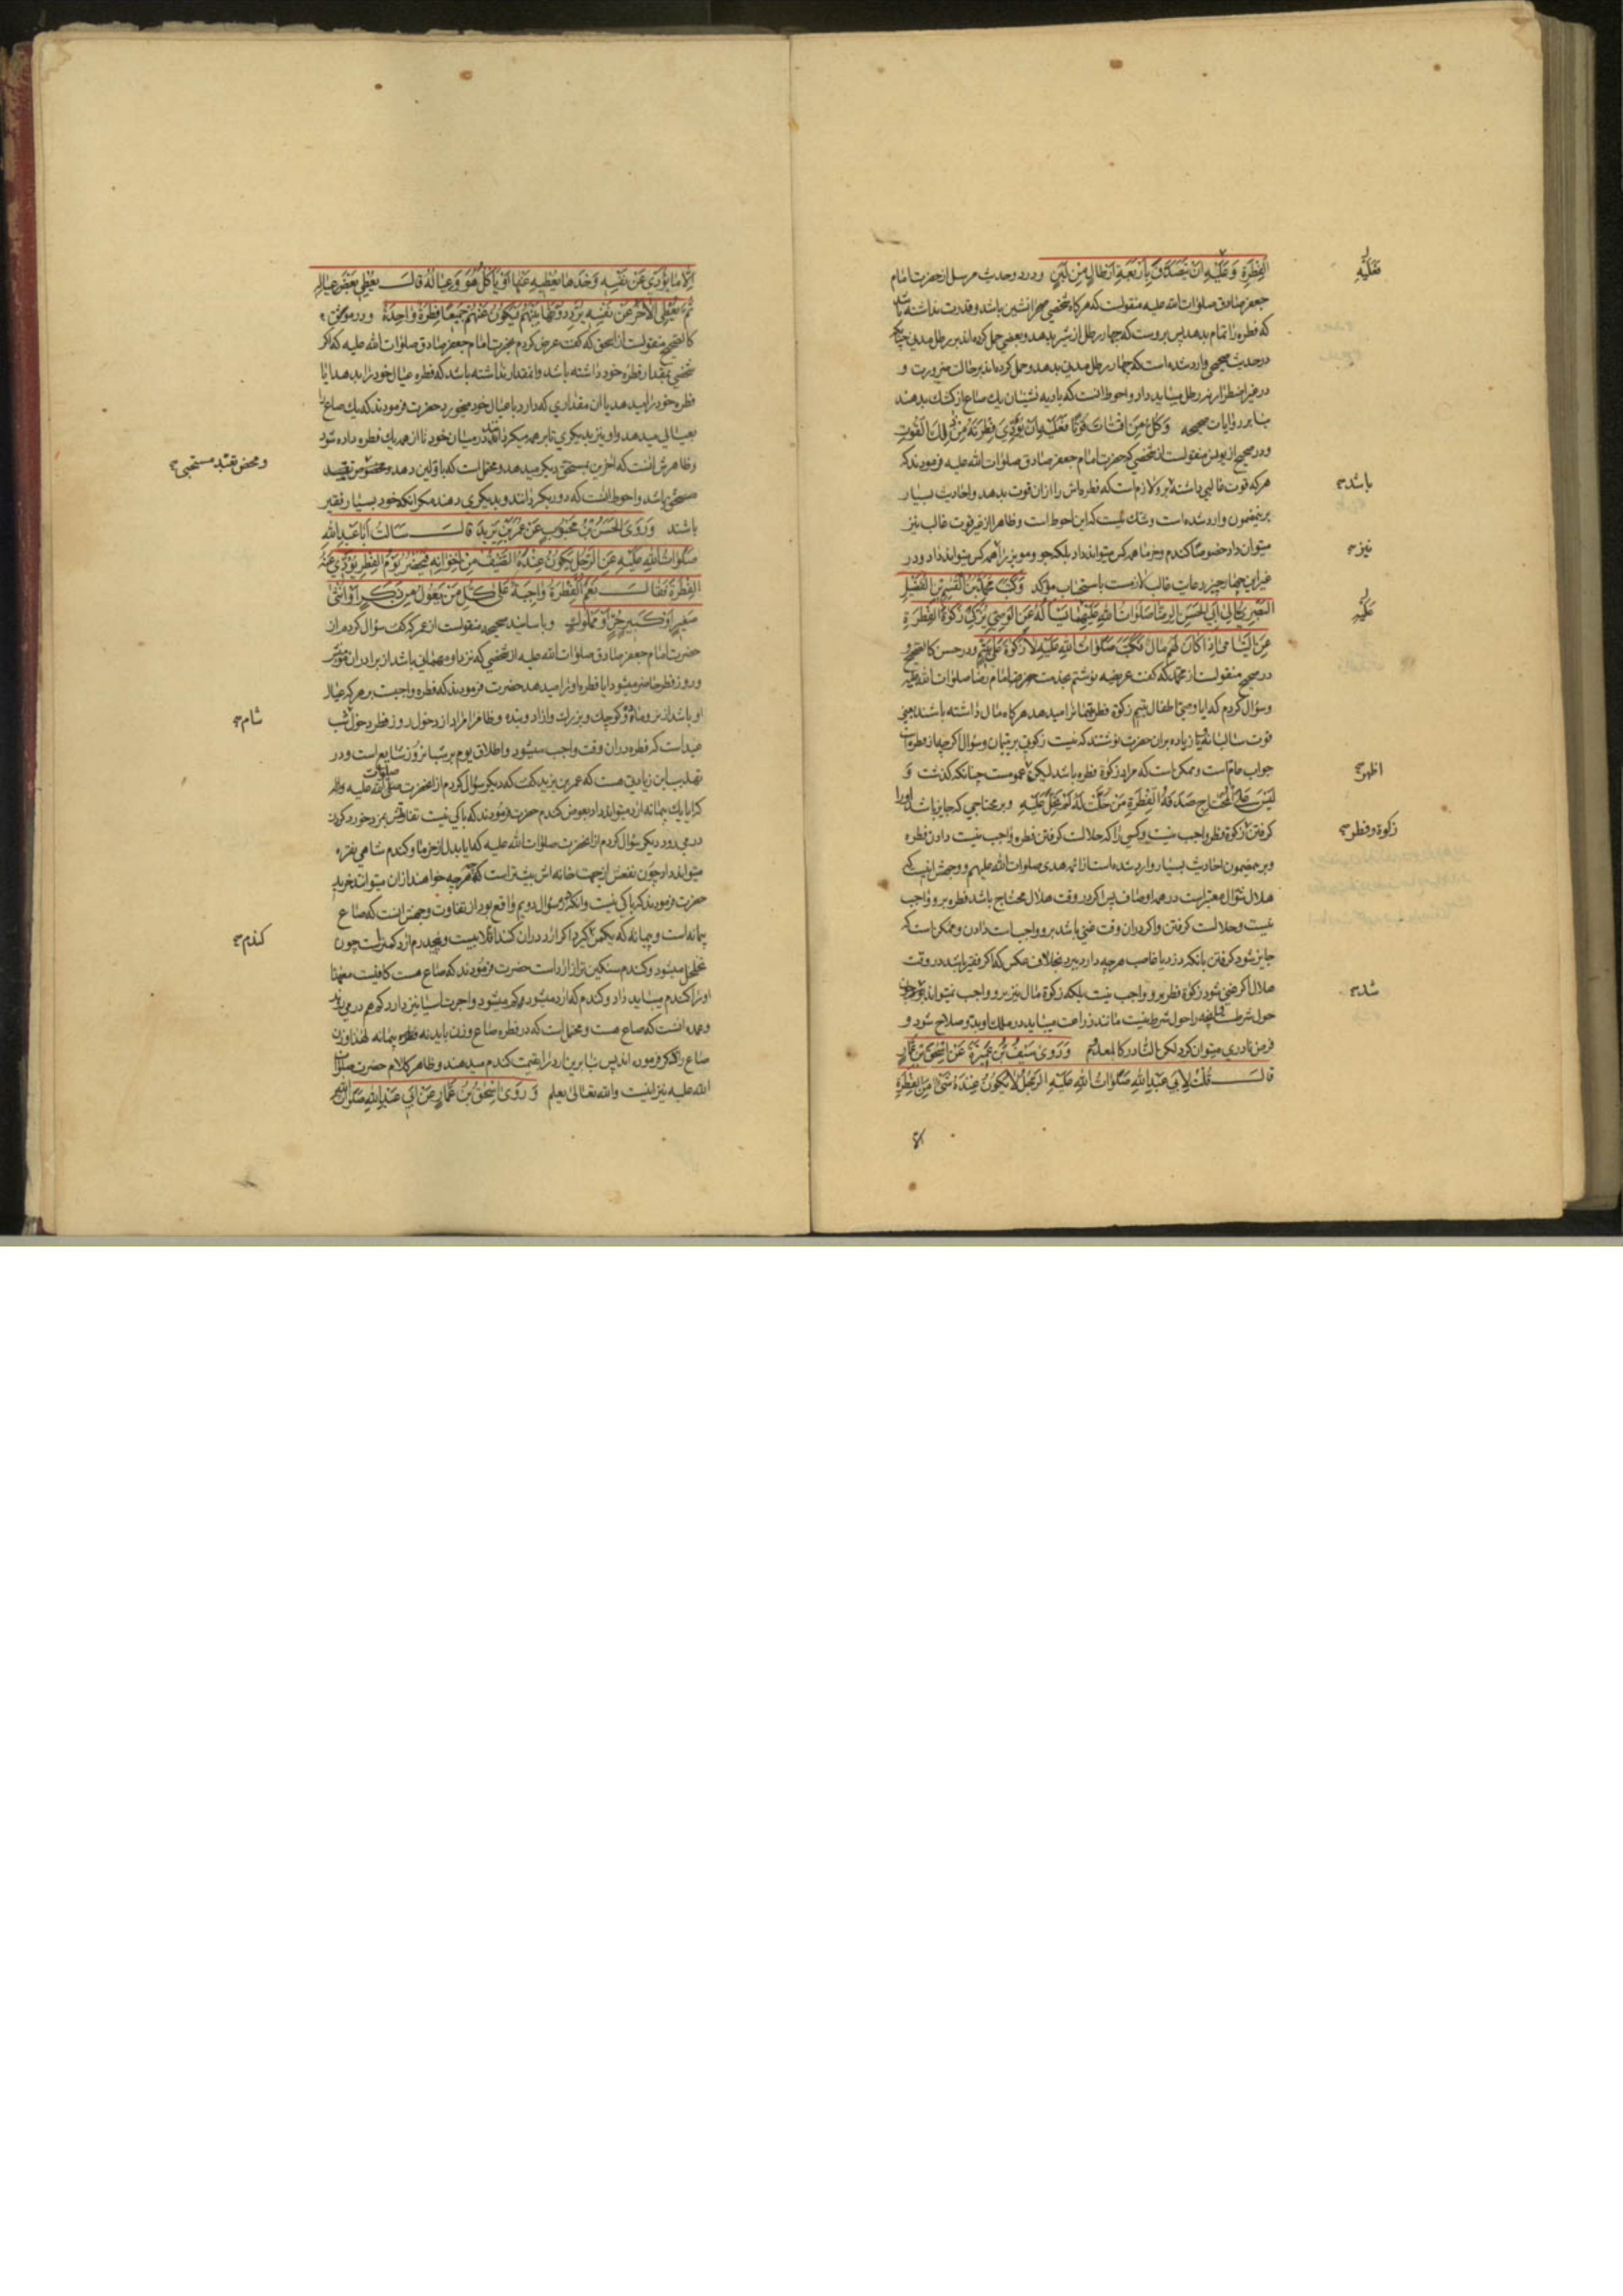 الْفِطْرَةِ وَعَلَيْهِ اَنْ يَتَصَدَّقَ بِاَرْبَعَةِ اَرْطَالٍ مِنْ لَبَنٍ ودر دو حدیث مرسل از حضرت امام
جعفر صادق صلوات الله علیه منقولست که هرکاه شخصی صحرا نشین باشد و قدرت نداشته باشد
که فطره را تمام بدهد پس بروست که چهار رطل از شیر بدهد و بعضی حمل کرده اند بر رطل مدنی چنانکه
در حدیث صحیحی وارد شده است که چهار رطل مدنی بدهد و حمل کرده اند بر حالت ضرورت و
در غیر اضطرار نه رطل میباید داد و احوط انست که بادیه نشینان یک صاع از کشک بدهند
بنا بر روایات صحیحه وَكُلُّ مَنِ اقْتَاتَ قُوتًا فَعَلَيْهِ اَنْ يُؤَدِّيَ فِطْرَتَهُ مِنْ ذٰلِكَ الْقُوتِ
ودر صحیح از یونس منقولست از شخصی که حضرت امام جعفر صادق صلوات الله علیه فرمودند که
هرکه قوت غالبی داشته برو لازم است که فطره اش را ازان قوت بدهد و احادیث بسیار
برینمضمون وارد شده است و شک نیست که این احوط است و ظاهرا از غیر قوت غالب نیز
میتوان داد خصوصا کندم و خرما همه کس میتوانند داد بلکه جو و مویز را همه کس میتوانند داد و در
غیر این چهار چیز رعایت غالب لازمست یا استحباب مؤکد وَكَتَبَ مُحَمَّدُ بْنُ الْقٰسِمِ بْنِ الْفُضَيْلِ
الْبَصْرِيُّ اِلٰى اَبِي الْحَسَنِ الرِّضَا صَلَوَاتُ اللهِ عَلَيْهِمَا يَسْاَلُهُ عَنِ الْوَصِيِّ يُزَكِّي زَكٰوةَ الْفِطْرَةِ
عَنِ الْيَتَامٰى اِذَا كَانَ لَهُمْ مَالٌ فَكَتَبَ صَلَوَاتُ اللهِ عَلَيْهِ لَا زَكٰوةَ عَلٰى يَتِيمٍ ودر حسن کالصحیح و
در صحیح منقولست از محمد که کفت عریضه نوشتم بخدمت حضرت امام رضا صلوات الله علیه
وسؤال کردم که ایا وصی اطفال یتیم زکوة فطره یتیمانرا میدهد هرکاه مال داشته باشند یعنی
قوت سالیانه یا زیاده بران حضرت نوشتند که نیست زکوتی بر یتیمان و سؤال اکرچه از فطره است
جواب عام است و ممکن است که مراد زکوة فطره باشد لیکن عمومست چنانکه کذشت وَ
لَيْسَ عَلَى الْمُحْتَاجِ صَدَقَةُ الْفِطْرَةِ مَنْ حَلَّتْ لَهُ لَمْ تَجِبْ عَلَيْهِ و بر محتاجی که جایز باشد اورا
کرفتن زکوة فطر واجب نیست و کسی را که حلالست کرفتن فطره واجب نیست دادن فطره
وبر مضمون احادیث بسیار وارد شده است از ائمه هدی صلوات الله علیهم و وجهش اینست که
هلال شوال معتبر است در همه اوصاف پس اکر در وقت هلال محتاج باشد فطره برو واجب
نیست و حلالست کرفتن و اکر دران وقت غنی باشد برو واجب است دادن و ممکن است که
جایز شود کرفتن بانکه دزد یا غاصب هرچه دارد ببرد بخلاف عکس که اکر فقیر باشد در وقت
هلال اکر غنی شود زکوة فطر برو واجب نیست بلکه زکوة مال نیز برو واجب نمیتواند
حول شرط و انچه را حول شرط نیست مانند زراعت میباید در ملک او بدو صلاح شود و
فرض نادری میتوان کرد لکن النادر کالمعدوم وَرَوٰى سَيْفُ بْنُ عَمِيرَةَ عَنْ اِسْحٰقَ بْنِ عَمَّارٍ
قَالَ قُلْتُ لِاَبِي عَبْدِ اللهِ صَلَوَاتُ اللهِ عَلَيْهِ الرَّجُلُ لَا يَكُونُ عِنْدَهُ شَيْءٌ مِنَ الْفِطْرَةِ
فَعَلَيْهِ
باشد
نیز
عَلَيْهِ
اظهر
زکوة و فطر
شد
اِلَّا مَا يُؤَدِّي عَنْ نَفْسِهِ وَحْدَهَا يُعْطِيهِ عَنْهَا اَوْ يَاْكُلُ هُوَ وَعِيَالُهُ قَالَ يُعْطِي بَعْضَ عِيَالِهِ
ثُمَّ يُعْطِي الْاٰخَرَ عَنْ نَفْسِهِ يُرَدِّدُونَهَا بَيْنَهُمْ فَيَكُونُ عَنْهُمْ جَمِيعًا فِطْرَةً وَاحِدَةً ودر موثق
کالصحیح منقولست از اسحق که کفت عرض کردم بحضرت امام جعفر صادق صلوات الله علیه که اکر
شخصی بمقدار فطره خود داشته باشد و انمقدار نداشته باشد که فطره عیال خود را بدهد ایا
فطره خود را میدهد یا ان مقداری که دارد با عیال خود میخورد حضرت فرمودند که یک صاع را
بعیالی میدهد و او نیز بدیکری تا بر همه میکردانند در میان خود تا از همه یک فطره داده شود
و ظاهرش انست که اخرین بمستحق دیکر میدهد و محتمل است که باولین دهد
مستحق باشد و احوط انست که دور بکردانند و بدیکری دهند مکر انکه خود بسیار فقیر
باشند وَرَوَى الْحَسَنُ بْنُ مَحْبُوبٍ عَنْ عُمَرَ بْنِ يَزِيدَ قَالَ سَاَلْتُ اَبَا عَبْدِ اللهِ
صَلَوَاتُ اللهِ عَلَيْهِ عَنِ الرَّجُلِ يَكُونُ عِنْدَهُ الضَّيْفُ مِنْ اِخْوَانِهِ فَيَحْضُرُ يَوْمُ الْفِطْرِ يُؤَدِّي عَنْهُ
الْفِطْرَةَ فَقَالَ نَعَمْ الْفِطْرَةُ وَاجِبَةٌ عَلٰى كُلِّ مَنْ يَعُولُ مِنْ ذَكَرٍ اَوْ اُنْثٰى
صَغِيرٍ اَوْ كَبِيرٍ حُرٍّ اَوْ مَمْلُوكٍ و باسانید صحیحه منقولست از عمر که کفت سؤال کردم از
حضرت امام جعفر صادق صلوات الله علیه از شخصی که نزد او مهمانی باشد از برادران مؤمنش
و روز فطر حاضر میشود ایا فطره اورا میدهد حضرت فرمودند که فطره واجبست بر هرکه عیال
او باشد از نر و ماده و کوچک و بزرک و ازاد و بنده و ظاهرا مراد از دخول روز فطر دخول شب
عید است که فطره دران وقت واجب میشود و اطلاق یوم بر شبانروز شایع است و در
تهذیب این زیادتی هست که عمر بن یزید کفت که دیکر سؤال کردم از انحضرت صلوات الله علیه
که ایا یک پیمانه ارد میتواند داد بعوض کندم حضرت فرمودند که باکی نیست تفاوتش بمزد خورد کردن
در میرود دیکر سؤال کردم از انحضرت صلوات الله علیه که ایا بدل از خرما و کندم شامی نقره
میتواند داد چون نفعش از جهت خانه اش بیشتر است که هرچه خواهند ازان میتوانند خرید
حضرت فرمودند که باکی نیست و انکه در سؤال دویم واقع بود از تفاوت وجهش انست که صاع
پیمانه است و پیمانه که یکمن کیرد اکر ارد دران کنند
تخلخل میشود و کندم سنکین تر از ارد است حضرت فرمودند که صاع هست کافیست معهذا
اورا کندم میباید داد و کندم که ارد میشود کم میشود و اجرت اسیا نیز دارد که هم در میرود
و عمده انست که صاع هست و محتمل است که در فطره صاع وزن باید نه پیمانه لهذا وزن
صاع را ذکر فرموده اند پس بنا برین ارد را بقیمت کندم میدهند و ظاهر کلام حضرت صلوات
الله علیه نیز اینست و الله تعالی یعلم وَرَوٰى اِسْحٰقُ بْنُ عَمَّارٍ عَنْ اَبِي عَبْدِ اللهِ صَلَوَاتُ اللهِ
شام
کندم